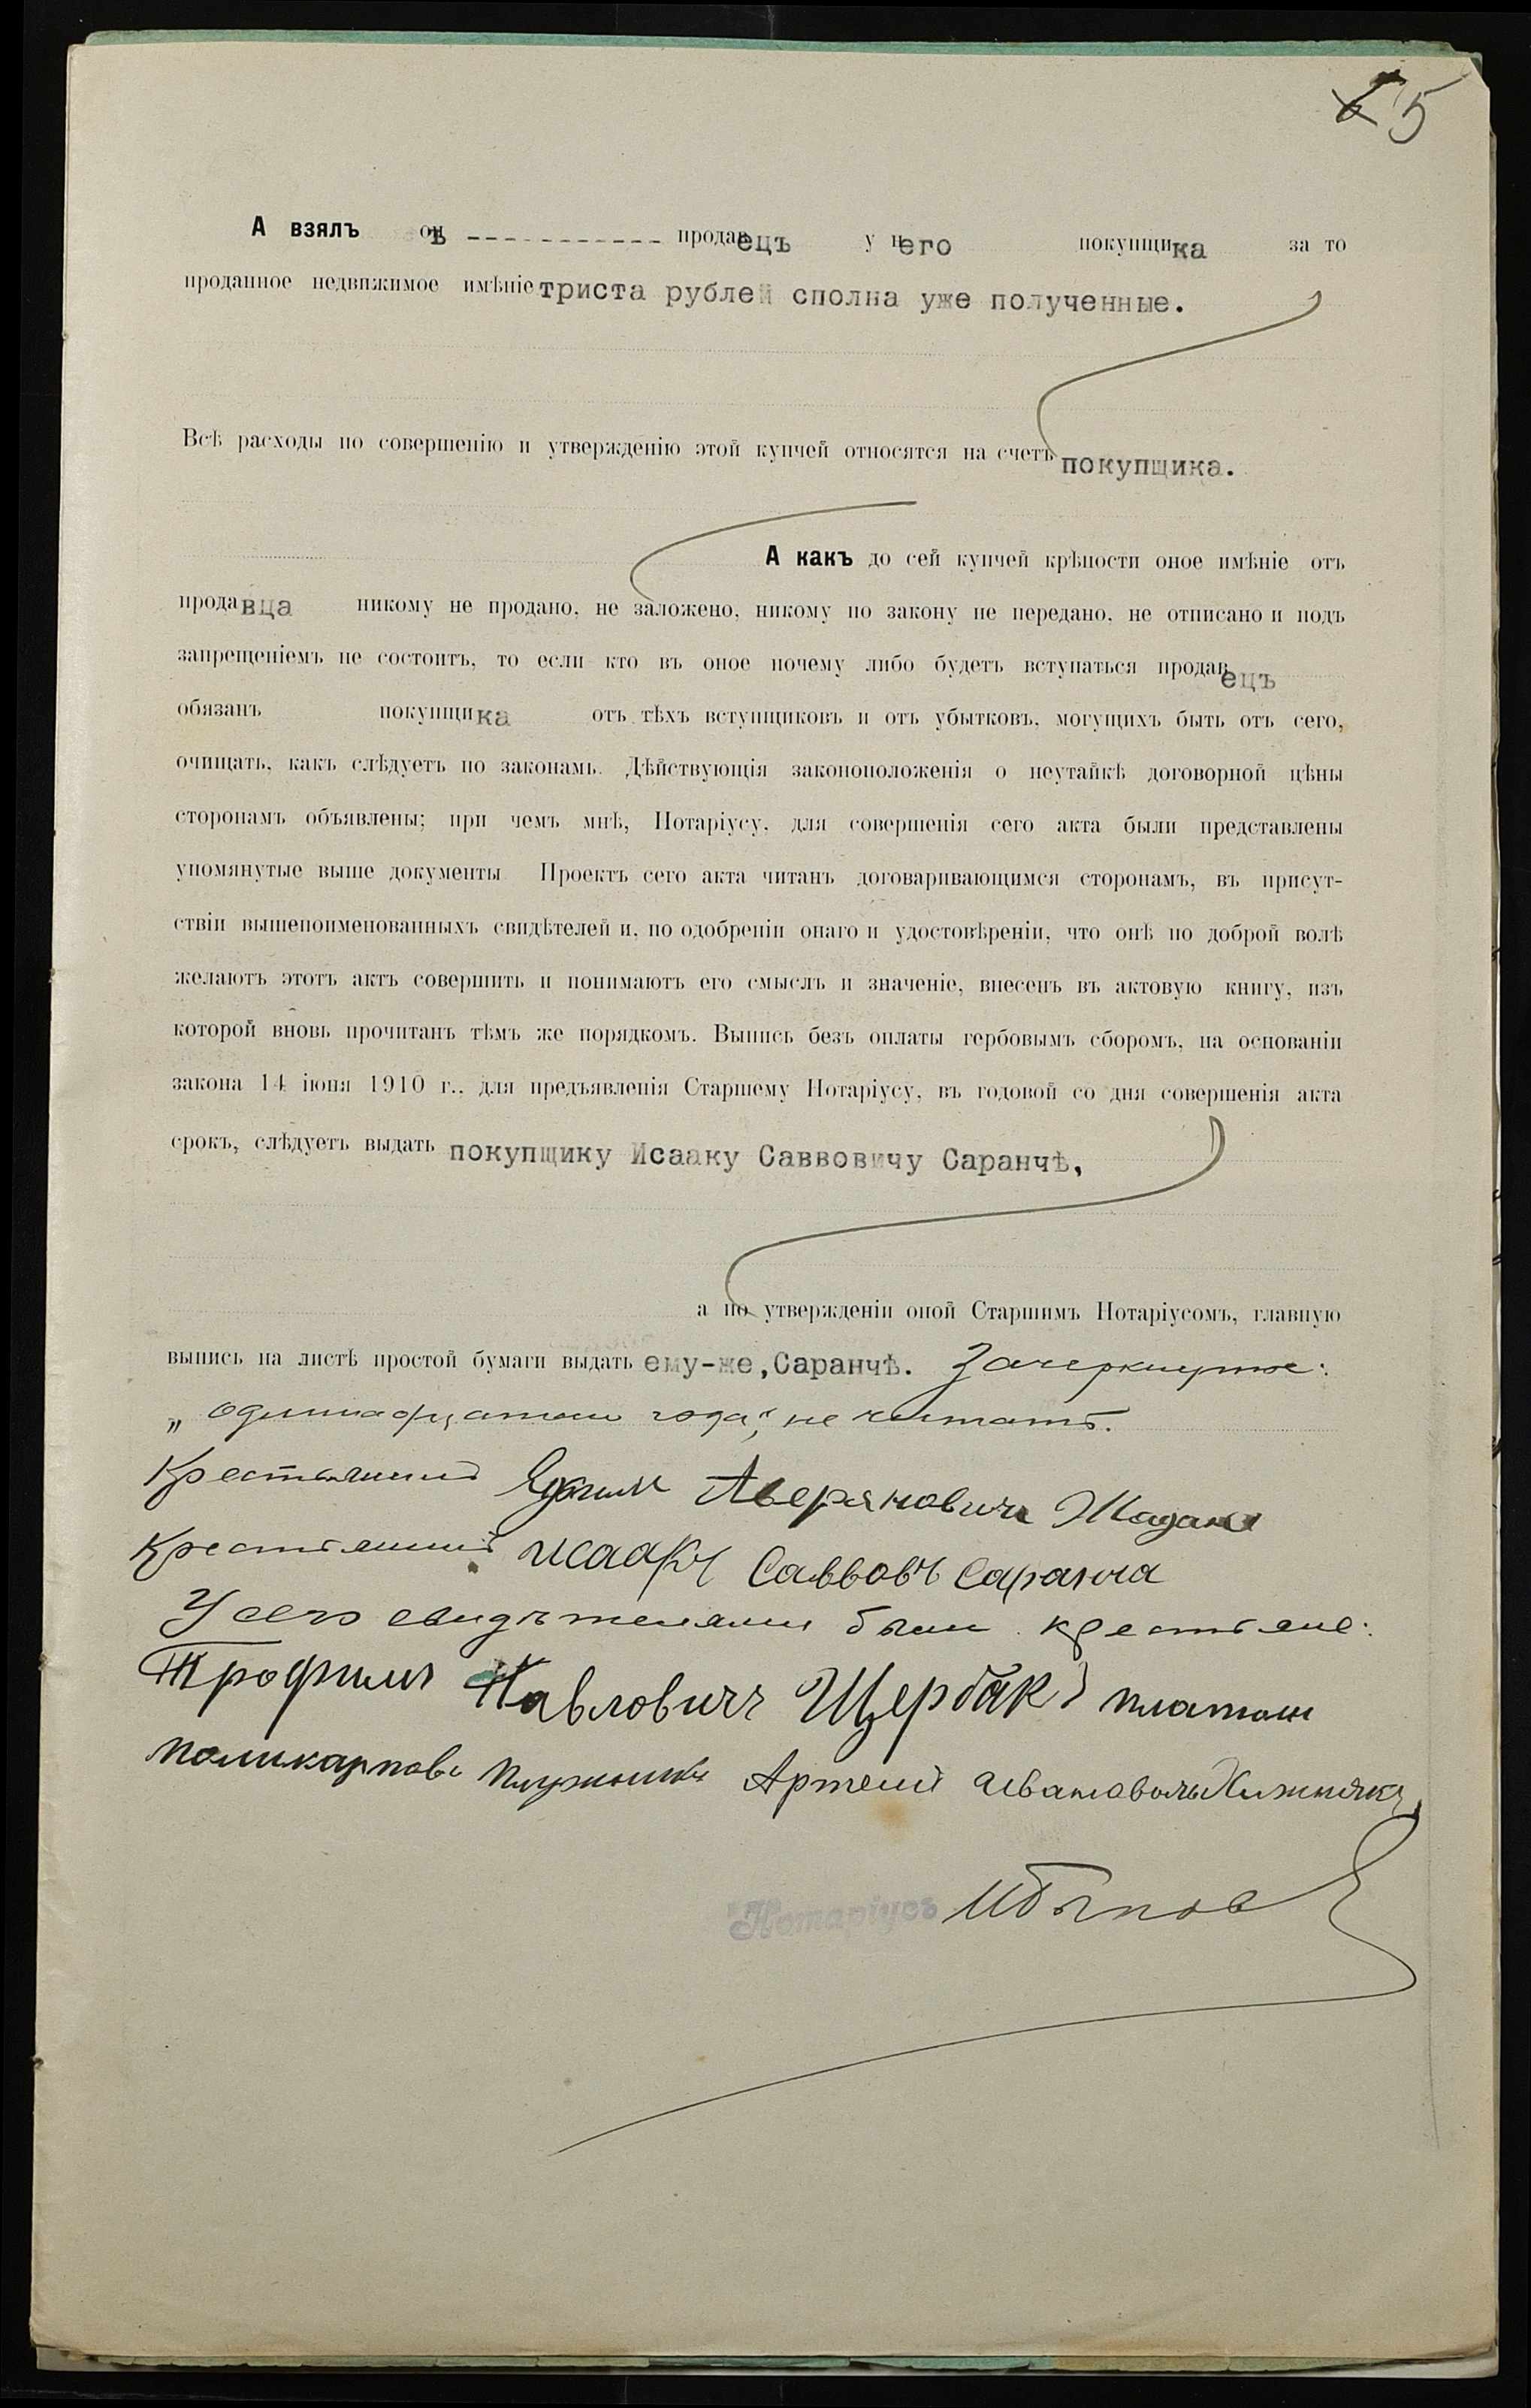 5
А взялъ онъ ------------ продавецъ у него покупщика за то
проданное недвижимое имѣніе триста рублей сполна уже полученные.
Всѣ расходы по совершенію и утвержденію этой купчей относятся на счетъ покупщика.
А какъ до сей купчей крѣпости оное имѣніе отъ
продавца никому не продано, не заложено, никому по закону не передано, не отписано и подъ
запрещеніемъ не состоитъ, то если кто въ оное почему либо будетъ вступаться продавецъ
обязанъ покупщика отъ тѣхъ вступщиковъ и отъ убытковъ, могущихъ быть отъ сего,
очищать, какъ слѣдуетъ по законамъ. Дѣйствующія законоположенія о неутайкѣ договорной цѣны
сторонамъ объявлены; при чемъ мнѣ, Нотаріусу, для совершенія сего акта были представлены
упомянутые выше документы Проектъ сего акта читанъ договаривающимся сторонамъ, въ присут-
ствіи вышепоименованныхъ свидѣтелей и, по одобреніи онаго и удостовѣреніи, что онѣ по доброй волѣ
желаютъ этотъ актъ совершить и понимаютъ его смыслъ и значеніе, внесенъ въ актовую книгу, изъ
которой вновь прочитанъ тѣмъ же порядкомъ. Выпись безъ оплаты гербовымъ сборомъ, на основаніи
закона 14 іюня 1910 г., для предъявленія Старшему Нотаріусу, въ годовой со дня совершенія акта
срокъ, слѣдуетъ выдать покупщику Исааку Саввовичу Саранчѣ,
а по утвержденіи оной Старшимъ Нотаріусомъ, главную
выпись на листѣ простой бумаги выдать ему-же, Саранчѣ. Зачеркнутое:
„одиннадцатаго года", не читать.
Крестьянинъ Аверяновичъ Жадан
Крестьянинъ Исаакъ Саввовъ Саранча
У сего свидѣтелями были крестьяне:
Трофимъ Павловичъ Щербакъ Платон
Поликарповъ Артемій Ивановичъ Хижнякъ
Нотаріусъ